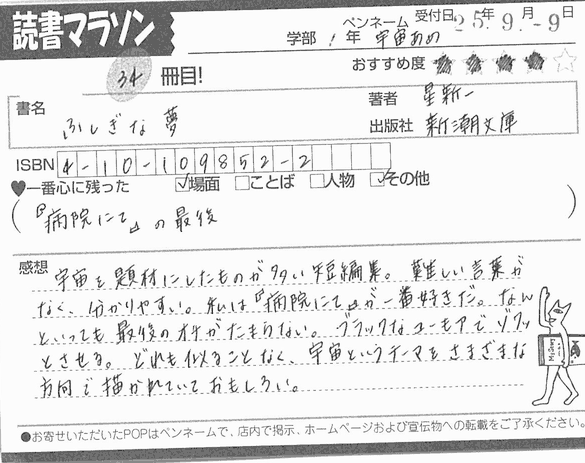 読書マラソン
受付日 25年 9月 -9日
学部 1年 ペンネーム 宇宙あめ
34 冊目!
おすすめ度 ★★★★☆
書名 ふしぎな夢
著者 星新一
出版社 新潮文庫
ISBN 4-10-109852-2
♥一番心に残った ☑場面 □ことば □人物 ☑その他
(『病院にて』の最後)
感想 宇宙を題材にしたものが多い短編集。難しい言葉が
なく、分かりやすい。私は『病院にて』が一番好きだ。なん
といっても最後のオチがたまらない。ブラックなユーモアでゾクッ
とさせる。どれも似ることなく、宇宙というテーマをさまざまな
方向で描かれていておもしろい。
●お寄せいただいたPOPはペンネームで、店内で掲示、ホームページおよび宣伝物への転載をご了承ください。